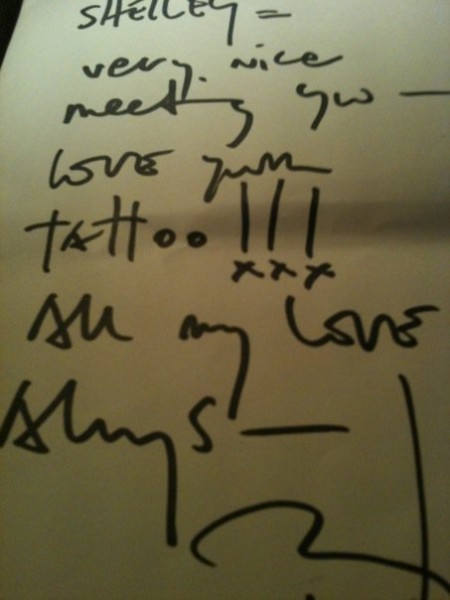 SHELLEY =
very. nice
meeting you —
LOVE your
TATToo !!!
All my LOVE
Always —